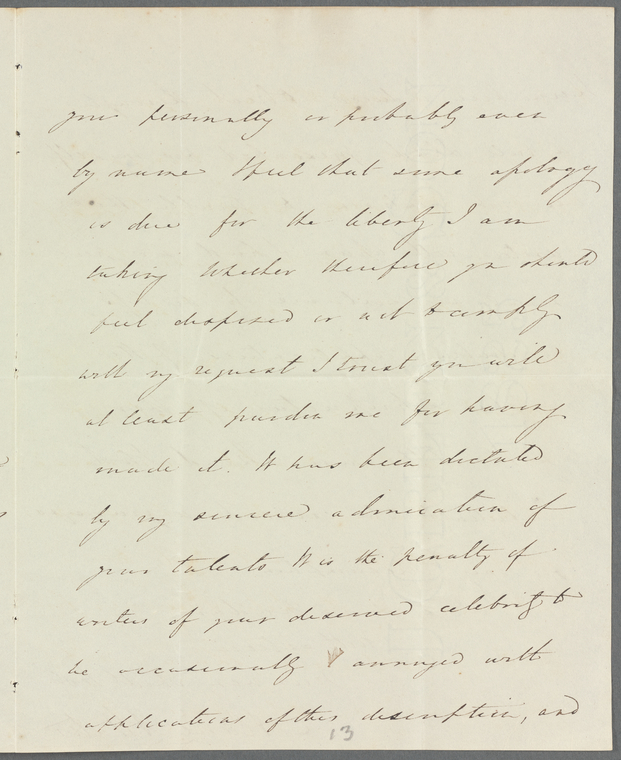 your personally or probably even
by name I feel that some apology
is due for the liberty I am
taking Whether therefore you should
feel disposed or not to comply
with my request I trust you will
at least pardon me for having
made it. It has been dictated
by my sincere admiration of
your talents It is the penalty of
writers of your deserved celebrity to
be occasionally annoyed with
applications of this description, and
13